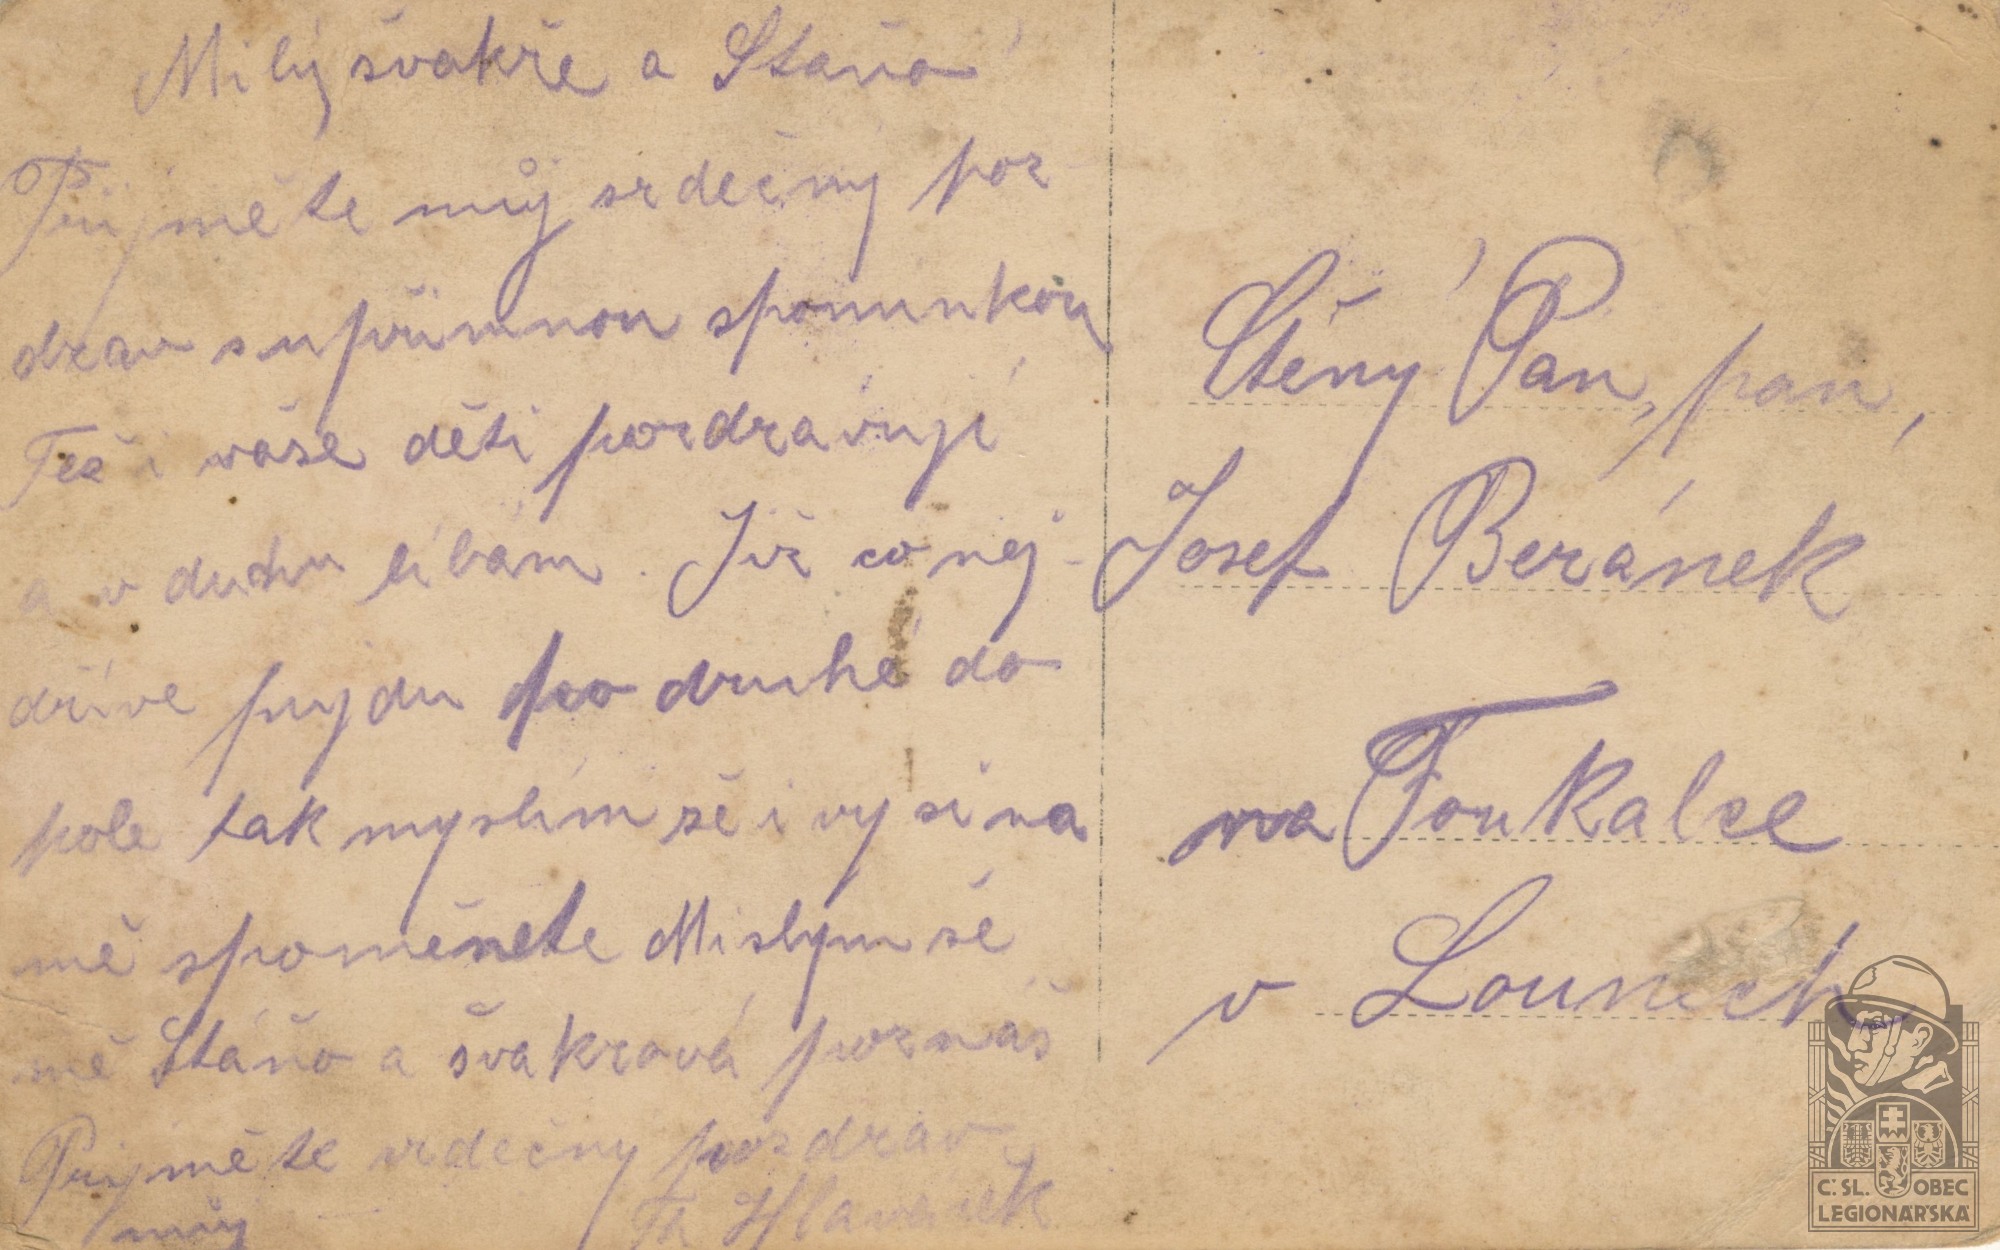 Milý švakře a Stáňo
Přijměte můj srdečný poz-
drav s upřímnou spomínkou
Též i vaše děti pozdravují
a v duchu líbám. Již co nej-
dříve pujdu po druhé do
pole tak myslím žě i vy si na
mě spoměnete Mislym žě
mě Stáňo a švakrová poznáš
Přijměte srdečný pozdrav
můj Hlaváček
Ctěný Pán, pan,
Josef Beránek
na Foukalce
v Lounech
Č. SL. OBEC
LEGIONÁŘSKÁ